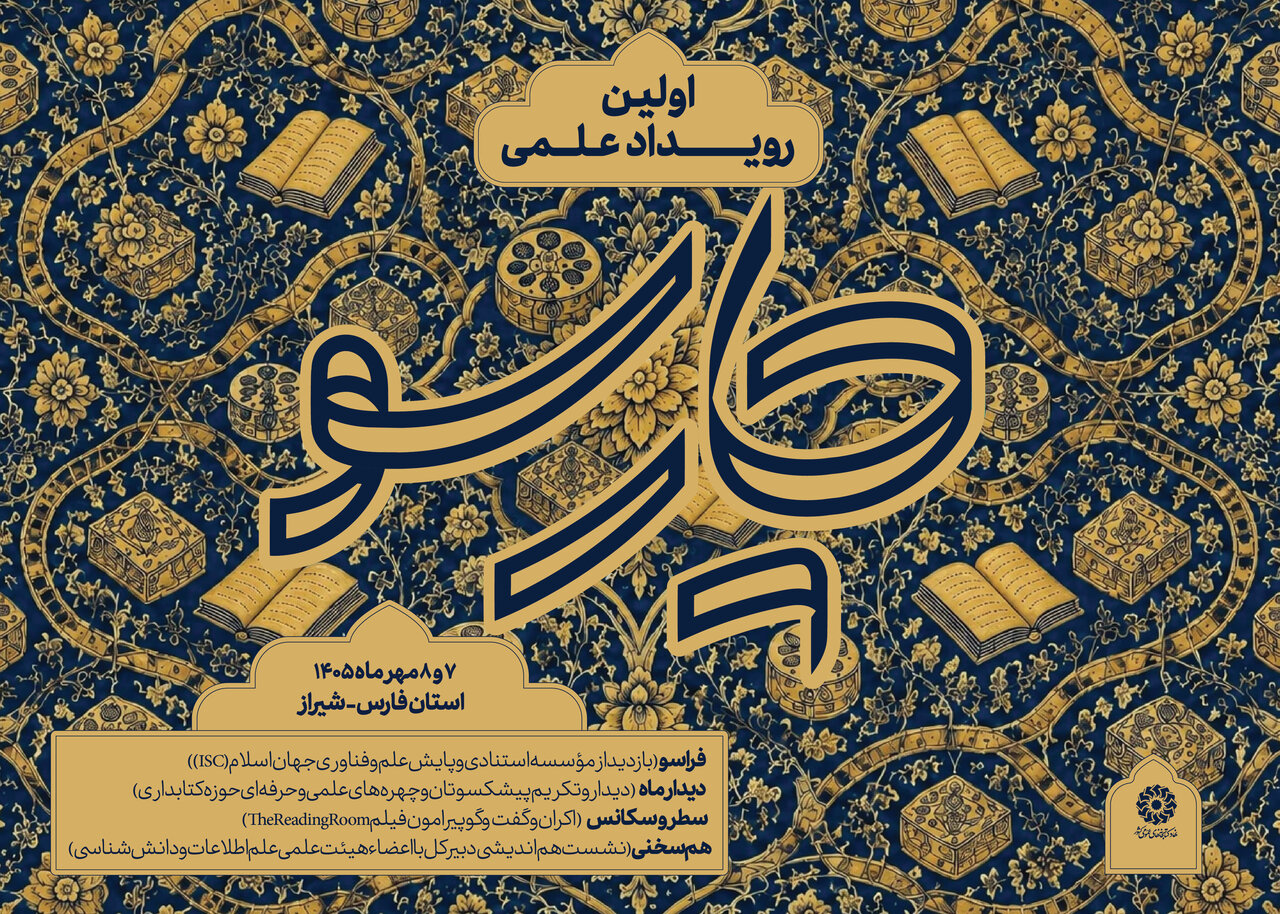 اولین
رویداد علمی
چارسو
۷ و ۸ مهر ماه ۱۴۰۵
استان فارس - شیراز
فراسو (بازدید از مؤسسه استنادی و پایش علم و فناوری جهان اسلام (ISC))
دیدار ماه (دیدار و تکریم پیشکسوتان و چهره‌های علمی و حرفه‌ای حوزه کتابداری)
سطر و سکانس (اکران و گفت و گو پیرامون فیلم The Reading Room)
هم‌سخنی (نشست هم‌اندیشی دبیرکل با اعضاء هیئت علمی علم اطلاعات و دانش‌شناسی)
نهاد کتابخانه‌های عمومی کشور